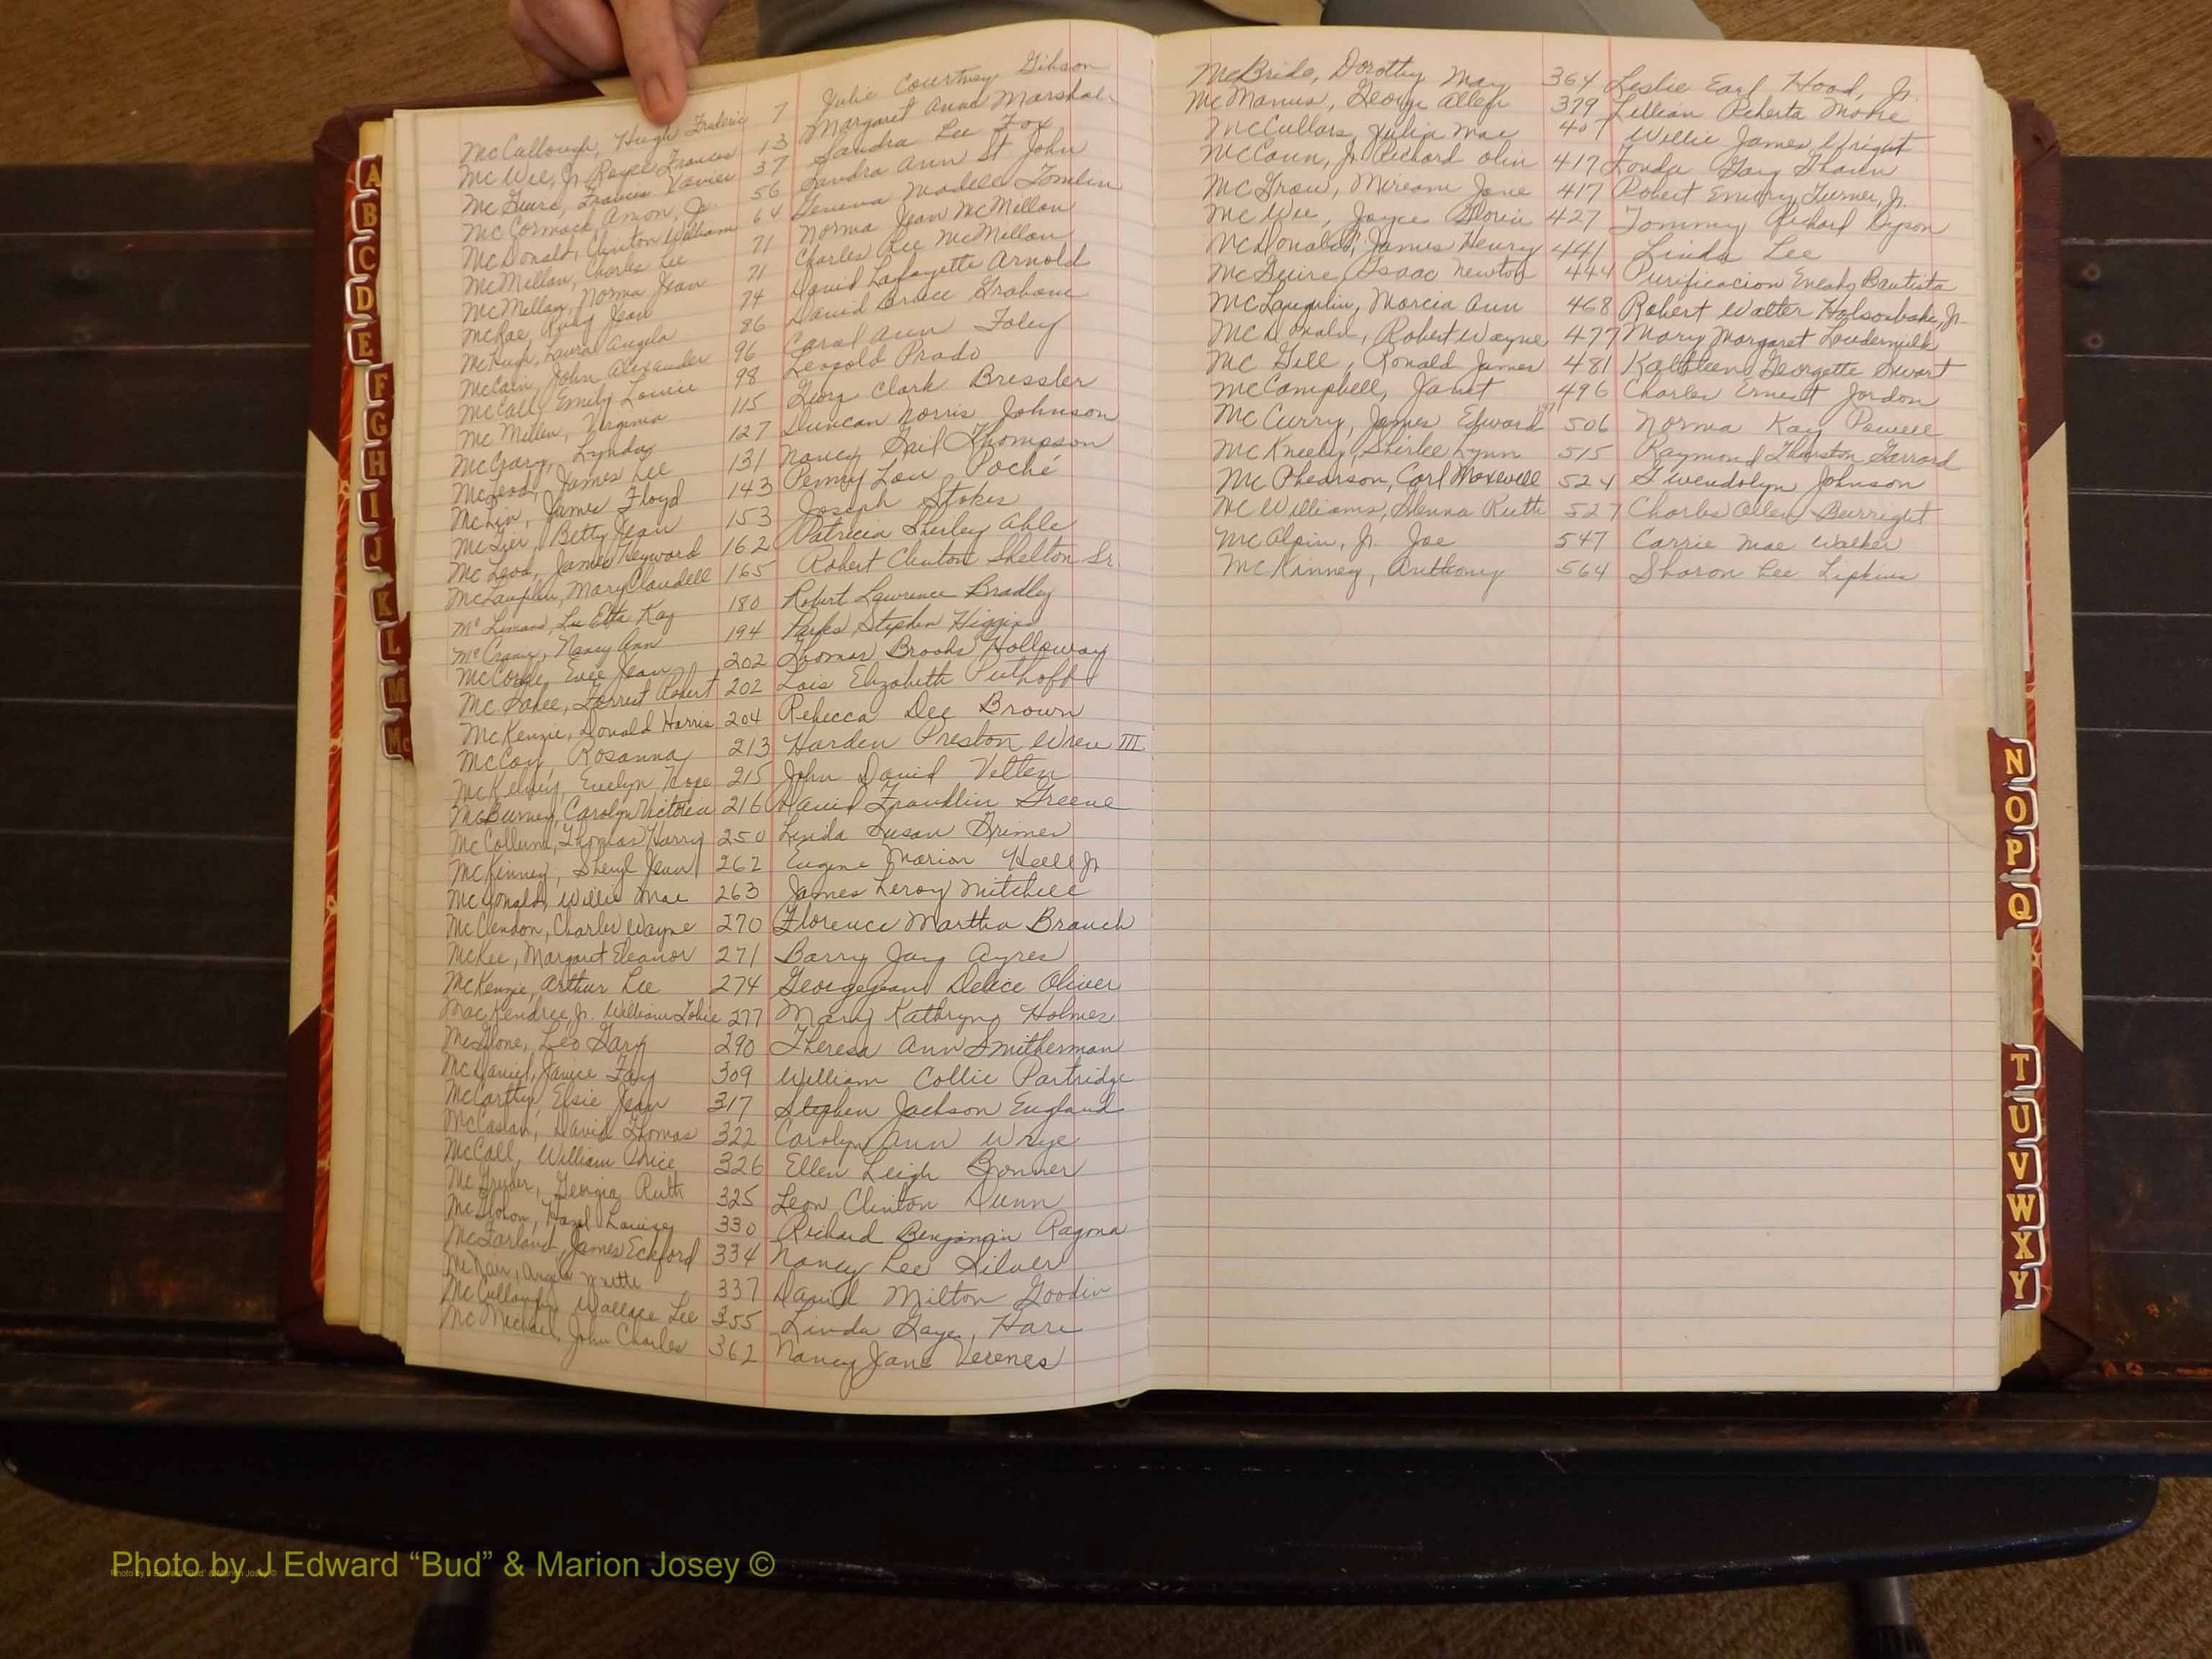 McCullough, Hugh Frederic 7 Julie Courtney Gibson
McWee, Jr Royce Francis 13 Margaret Anne Marshall
McGuire, Francis Xavier 37 Sandra Lee Fox
McCormack, Amon, Jr. 56 Sandra Ann St John
McDonald, Clinton William 64 Geneva Modell Tomlin
McMillan, Charles Lee 71 Norma Jean McMillan
McMillan, Norma Jean 71 Charles Lee McMillan
McRae, Ruby Jean 74 David Lafayette Arnold
McHugh, Laural Angela 86 David Bruce Graham
McCain, John Alexander 96 Carol Ann Foley
McCall, Emily Louise 98 Leopold Prado
McMillen, Virginia 115 Georg Clark Bressler
McGary, Lynda 127 Duncan Norris Johnson
McLeod, James Lee 131 Nancy Gail Thompson
McLin, James Floyd 143 Penny Lou Poché
McTier, Betty Jean 153 Joseph Stokes
McLeod, James Heyward 162 Patricia Sherley Able
McLauflin, Mary Claudell 165 Robert Clinton Shelton Sr.
McLemans, Lu Etta Kay 180 Robert Lawrence Bradley
Nancy Ann 194 Parks Stephen Higgins
McCorkle, Evee Jean 202 Thomas Brooks Holloway
McGahee, Forrest Robert 202 Lois Elizabeth Puthoff
McKenzie, Donald Harris 204 Rebecca Dee Brown
McCoy, Rosanna 213 Harden Preston Wren III
McKelvey, Evelyn Hope 215 John David Velten
McBurney, Carolyn Victoria 216 David Franklin Greene
McCollum, Thomas Harry 250 Linda Susan Grimes
McKinney, Sheryl Jean 262 Eugene Marion Hall Jr
McDonald, Willie Mae 263 James Leroy Mitchell
McClendon, Charles Wayne 270 Florence Martha Branch
McKee, Margaret Eleanor 271 Barry Jay Ayres
McKenzie, Arthur Lee 274 Georgejean Delice Oliver
MacKendree, Jr. William Tobie 277 Mary Kathryn Holmes
McGlone, Leo Gary 290 Theresa Ann Smitherman
McDaniel, Janice Fay 309 William Collie Partridge
McCarthy, Elsie Jean 317 Stephen Jackson England
McCaslan, David Thomas 322 Carolyn Ann Wrye
McCall, William Price 326 Ellen Leigh Bonner
McGruder, Georgia Ruth 325 Leon Clinton Dunn
McGlohon, Hazel Louise 330 Richard Benjamin Ragona
McFarland, James Eckford 334 Nancy Lee Silver
McNair, Angela Annette 337 David Milton Goodin
McCullough, Wallace Lee 355 Linda Gaye Hare
McMichael, John Charles 362 Nancy Jane Verenes
McBride, Dorothy May 364 Leslie Earl Hood, Jr.
McManus, George Allen 379 Lillian Roberta Moore
McCullars, Julia Mae 407 Willie James Wright
McCann, Jr. Richard Olin 417 Londa Gay Shann
McGraw, Miriam Jane 417 Robert Emory Turner, Jr.
McWee, Joyce Gloria 427 Tommy Richard Dyson
McDonald, James Henry 441 Linda Lee
McGuire, Isaac Newton 444 Purificacion Bautista
McLaughlin, Marcia Ann 468 Robert Walter Holsonbake, Jr.
McDonald, Robert Wayne 477 Mary Margaret Loudermilk
McGill, Ronald James 481 Kathleen Georgette Swart
McCampbell, Janet 496 Charles Ernest Jordon
McCurry, James Edward 1971 506 Norma Kay Powell
McKneely, Shirlee Lynn 515 Raymond Thurston Garrard
McPhearson, Carl Maxwell 524 Gwendolyn Johnson
McWilliams, Glenna Ruth 527 Charles Allen Burright
McAlpin, Jr. Joe 547 Carrie Mae Walker
McKinney, Anthony 564 Sharon Lee Lipkins
A
B
C
D
E
F
G
H
I
J
K
L
M
Mc
N
O
P
Q
T
U
V
W
X
Y
Photo by J Edward “Bud” & Marion Josey ©
Photo by J Edward “Bud” & Marion Josey ©